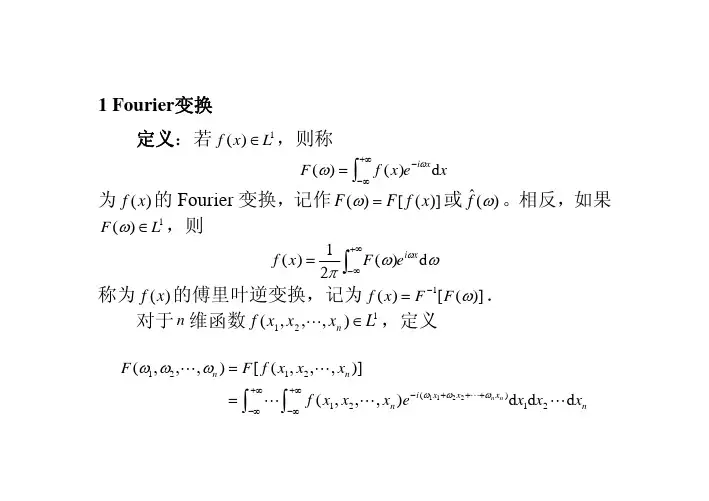 1 Fourier变换
定义：若 f(x)∈L¹，则称
F(ω) = ∫₋∞⁺∞ f(x)e^{-iωx}dx
为 f(x) 的 Fourier 变换，记作 F(ω) = F[f(x)] 或 f̂(ω)。相反，如果
F(ω)∈L¹，则
f(x) = 1/2π ∫₋∞⁺∞ F(ω)e^{iωx}dω
称为 f(x) 的傅里叶逆变换，记为 f(x) = F⁻¹[F(ω)].
对于 n 维函数 f(x₁,x₂,⋯,xₙ)∈L¹，定义
F(ω₁,ω₂,⋯,ωₙ) = F[f(x₁,x₂,⋯,xₙ)]
= ∫₋∞⁺∞ ⋯ ∫₋∞⁺∞ f(x₁,x₂,⋯,xₙ)e^{-i(ω₁x₁+ω₂x₂+⋯+ωₙxₙ)}dx₁dx₂⋯dxₙ